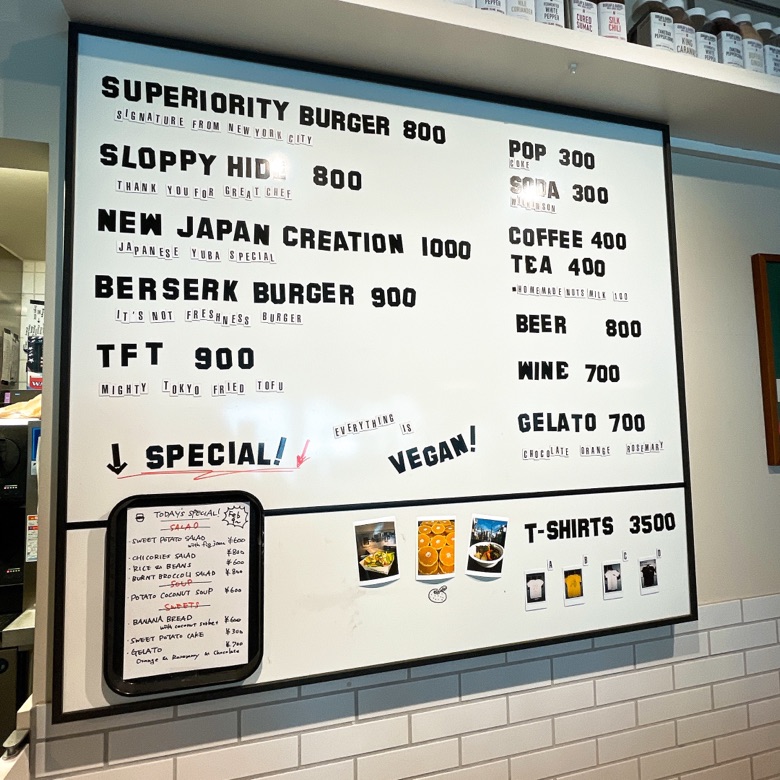 SUPERIORITY BURGER 800
SIGNATURE FROM NEW YORK CITY
SLOPPY HIDE 800
THANK YOU FOR GREAT CHEF
NEW JAPAN CREATION 1000
JAPANESE YUBA SPECIAL
BERSERK BURGER 900
IT'S NOT FRESHNESS BURGER
TFT 900
MIGHTY TOKYO FRIED TOFU
↓ SPECIAL! ↓
EVERYTHING IS
VEGAN!
POP 300
COKE
SODA 300
WILKINSON
COFFEE 400
TEA 400
▪HOMEMADE NUTS MILK 100
BEER 800
WINE 700
GELATO 700
CHOCOLATE ORANGE ROSEMARY
T-SHIRTS 3500
A B C D
TODAY'S SPECIAL!
Feb
SALAD
・SWEET POTATO SALAD ¥600
with fig jam
・CHICORIES SALAD ¥800
・RICE & BEANS ¥600
・BURNT BROCCOLI SALAD ¥800
SOUP
・POTATO COCONUT SOUP ¥600
SWEETS
・BANANA BREAD ¥600
with coconut sorbet
・SWEET POTATO CAKE ¥300
・GELATO ¥700
Orange & Rosemary & Chocolate
WHITE PEPPER
CURED SUMAC
SILK CHILI